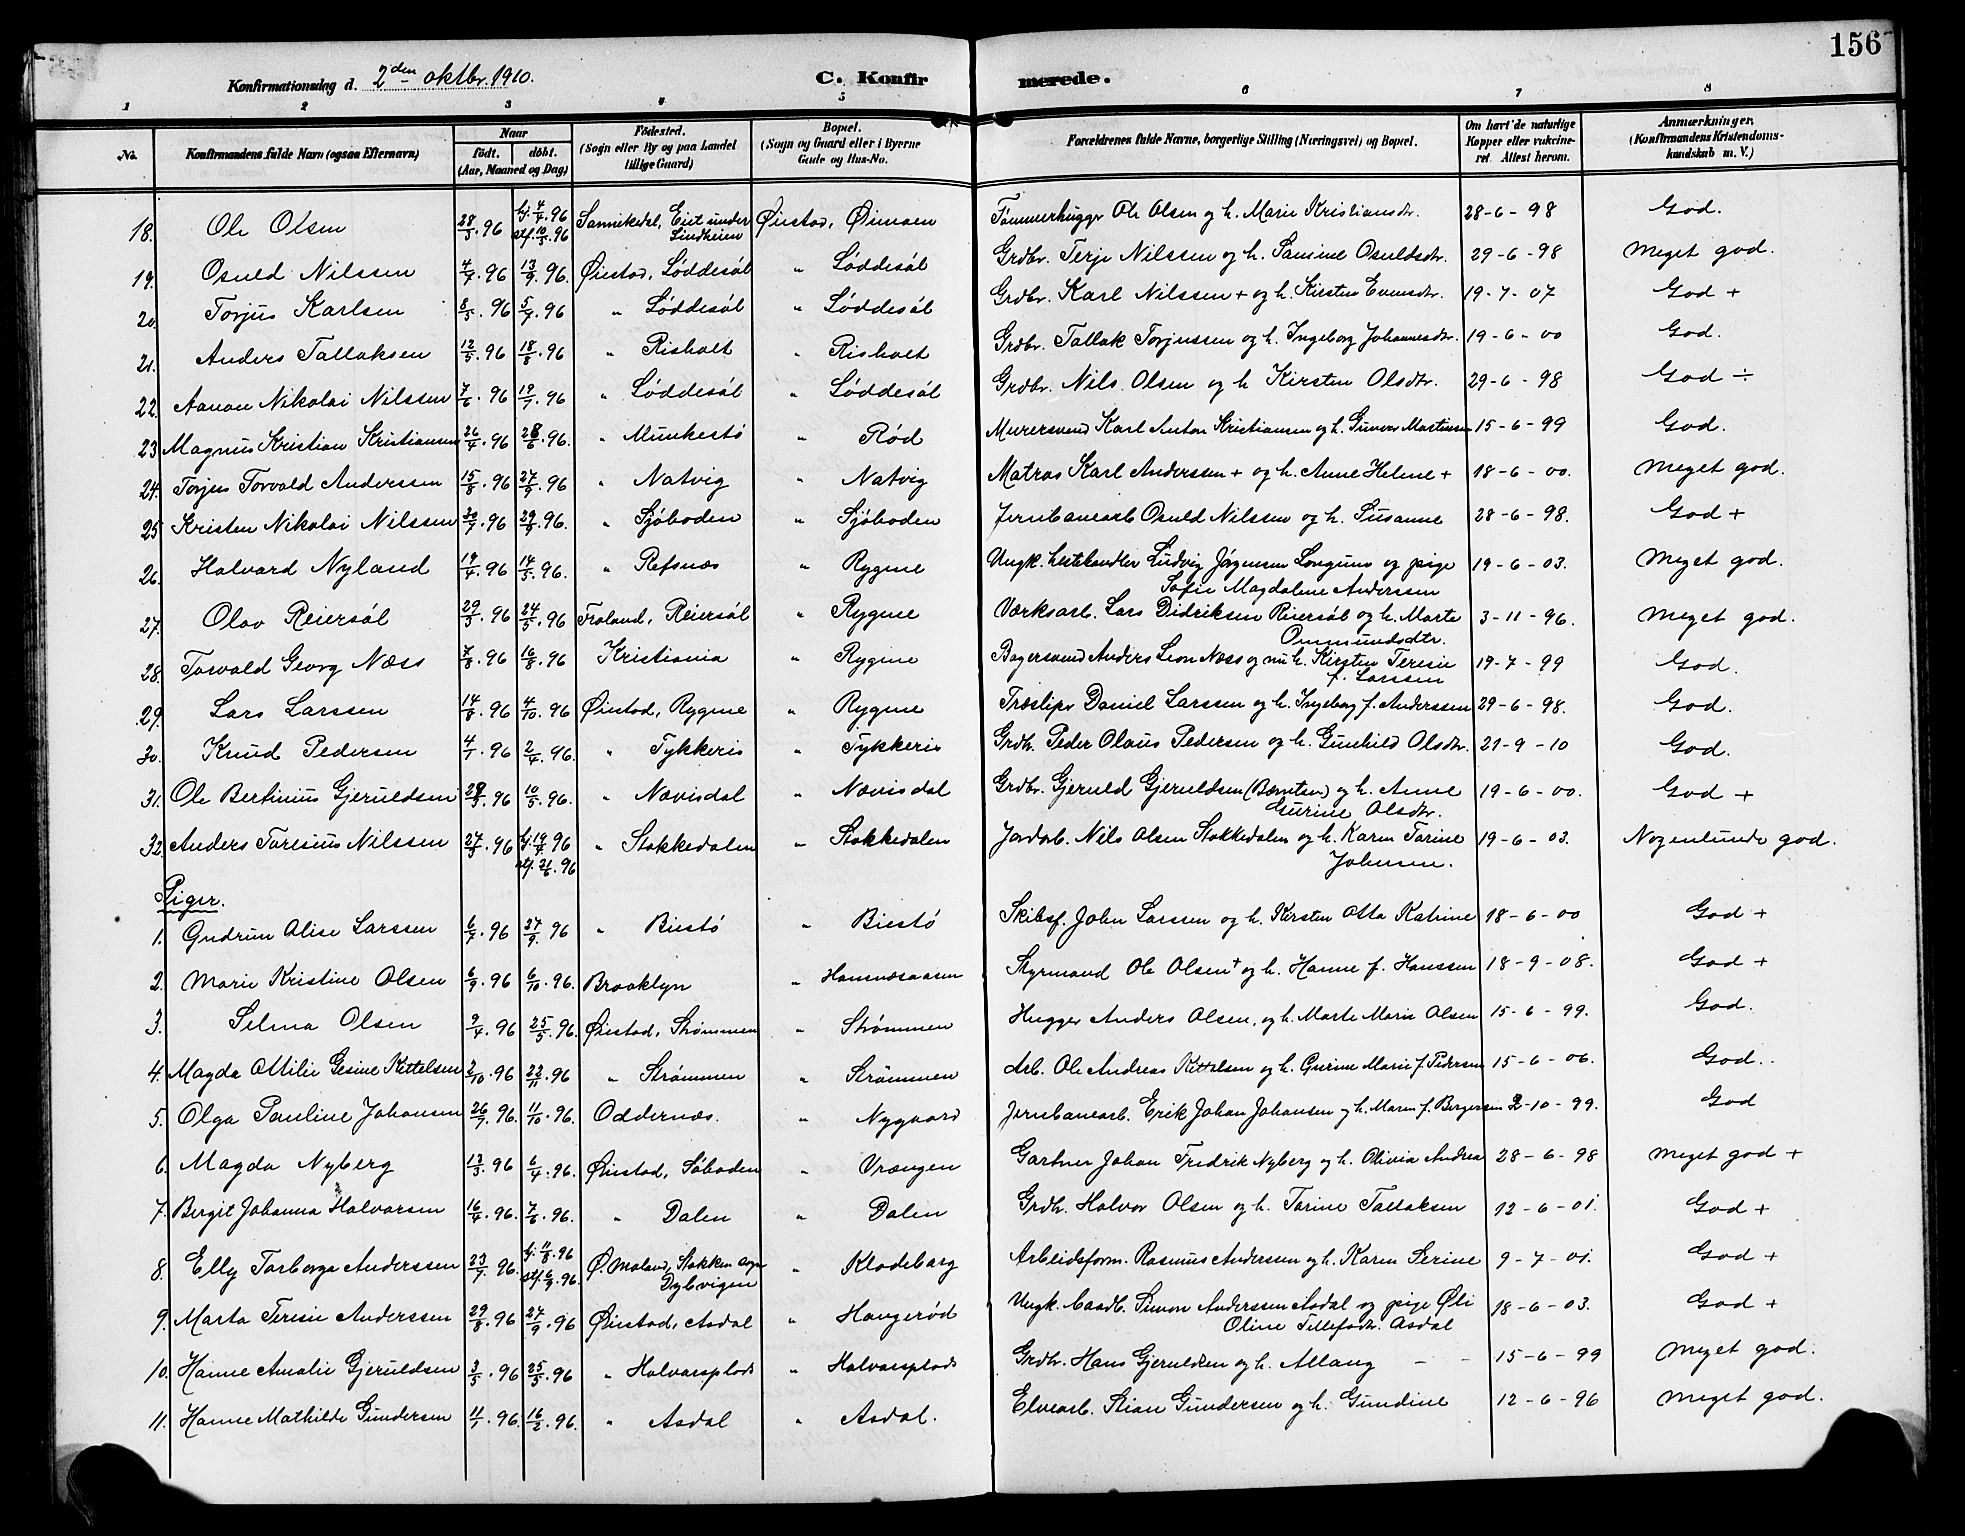 156
Konfirmationsdag d. 2den oktbr. 1910.
C. Konfirmerede.
1 2 3 4 5 6 7 8
No. | Konfirmandens fulde Navn (ogsaa Efternavn) | Naar født. døbt. (Aar, Maaned og Dag) | Fødested. (Sogn eller By og paa Landet tillige Gaard) | Bopæl. (Sogn og Gaard eller i Byerne Gade og Hus-No. | Forældrenes fulde Navne, borgerlige Stilling (Næringsvei) og Bopæl. | Om havt de naturlige Kopper eller vakcineret. Attest herom. | Anmærkninger. (Konfirmandens Kristendomskundskab m. V.)
18. Ole Olsen 28/3.96 hj. 4/4.96 stf. 10/5.96 Sannikedal, Eiet under Lindheien Øiestad, Øimoen Tømmerhugger Ole Olsen og h. Marie Kristiansdr. 28-6-98 God.
19. Osuld Nilssen 4/7.96 13/9.96. Øiestad, Løddesøl " Løddesøl Grdbr. Terje Nilssen og h. Samine Osuldsdr. 29-6-98 Meget god.
20. Torjus Karlsen 8/5.96 5/7.96 " Løddesøl " Løddesøl Grdbr. Karl Nilssen + og h. Kirsten Evensdr. 19-7-07 God +
21. Anders Tallaksen 12/5.96 18/8.96 " Risholt " Risholt Grdbr. Tallak Torjussen og h. Ingeborg Johannesdr. 19-6-00 God.
22. Aanon Nikolai Nilssen 7/6.96 19/7.96 " Løddesøl " Løddesøl Grdbr. Nils Olsen og h Kirsten Olsdr. 29-6-98 God ÷
23 Magnus Kristian Kristiansen 26/4.96 28/6.96. " Munkestø " Rød Murersvend Karl Anton Kristiansen og h. Gunvor Martinsen 15-6-99 God.
24. Torjus Torvald Anderssen 15/8.96 27/9.96 " Natvig " Natvig Matros Karl Anderssen + og h. Anne Helene + 18-6-00. Meget god.
25 Kristen Nikolai Nilssen 30/7.96 29/9.96. " Sjøboden " Sjøboden Jernbanearb. Osuld Nilssen og h. Susanne 28-6-98. God +
26. Halvard Nyland 19/4.96 14/5.96. " Refsnæs " Rygene Ungk. hestehandler Ludvig Jørgensen Longum og pige Sofie Magdalene Anderssen 19-6-03. Meget god.
27. Olav Reiersøl 29/3.96 24/5.96 Froland, Reiersøl " Rygene Værksarb. Lars Didriksen Reiersøl og h. Marte Ommundsdtr. 3-11-96. Meget god.
28. Torvald Georg Næss 7/8.96 16/8.96 Kristiania " Rygene Bagersvend Anders Leon Næss og nu h. Kirsten Teresie f. Larssen 19-7-99 God.
29. Lars Larssen 14/8.96 4/10.96 Øiestad, Rygene " Rygene Træsliper Daniel Larssen og h. Ingeborg f. Anderssen 29-6-98. God.
30. Knud Pedersen 4/1.96 2/4.96. " Tykkeris " Tykkeris Grdbr. Peder Olaus Pedersen og h. Gunhild Olsdr. 21-9-10 God.
31. Ole Bertinius Gjeruldsen 28/3.96 10/5.96. " Nævisdal " Nævisdal Grdbr. Gjeruld Gjeruldsen (Berntsen) og h. Anne Gurine Olsdtr. 19-6-00. God +
32. Anders Taresius Nilssen 24/3.96 hj. 19/4 96 stf. 21/6.96 " Stokkedalen " Stokkedalen Jordarb. Nils Olsen Stokkedalen og h. Karen Tarine Johnsen. 19-6-03. Nogenlunde god.
Piger.
1. Gudrun Alise Larssen 6/7.96 27/9.96 " Biestø " Biestø Skibsf. John Larssen og h. Kirsten Otta Katrine 18-6-00 God +
2. Marie Kristine Olsen 6/9.96 6/10.96. Brooklyn " Havnæsaasen Styrmand Ole Olsen + og h. Hanne f. Hanssen 18-9-08. God +
3. Selma Olsen 9/4.96 25/5.96. Øiestad, Strømmen " Strømmen Hugger Anders Olsen, og h. Marte Marie Olsen 15-6-99. God.
4. Magda Ottilie Gesine Kittelsen 2/10.96 22/11.96 " Strømmen " Strømmen Arb. Ole Andreas Kittelsen og h. Gurine Marie f. Pedersen 15-6-06. God.
5. Olga Pauline Johansen 26/7.96. 11/10.96. Oddernæs. " Nygaard Jernbanearb. Erik Johan Johansen og h. Maren f. Bergersen 2-10-99. God
6. Magda Nyberg 13/3.96 6/4.96. Øiestad, Søboden " Vrængen Gartner Johan Fredrik Nyberg og h. Olivia Andrea 28-6-98 Meget god +
7. Bergit Johanna Halvorsen 16/4.96. 7/6.96. " Dalen " Dalen Grdbr. Halvor Olsen og h. Tarine Tallaksen 12-6-01. God +
8. Elly Torborga Anderssen 23/7.96. hj. 11/8.96 stf. 6/9.96. Ø. Moland, Stokken sogn Dybvigen " Klodeborg Arbeidsform. Rasmus Anderssen og h. Karen Serine 9-7-01. God +
9. Marta Teresie Anderssen 29/8.96 27/9.96 Øiestad, Asdal " Haugerød Ungk. Simon Anderssen Asdal og pige Øli Oline Tellefsdr. Asdal 18-6-03. God +
10. Hanne Amalie Gjeruldsen 3/5.96 25/5.96 " Halvorsplads " Halvorsplads Grdbr. Hans Gjeruldsen og h. Allaug - - 15-6-99 Meget god.
11. Hanne Mathilde Gundersen 11/1.96. 16/2.96. " Asdal " Asdal. Elvearb. Stian Gundersen og h. Gundine 12-6-96 Meget god.